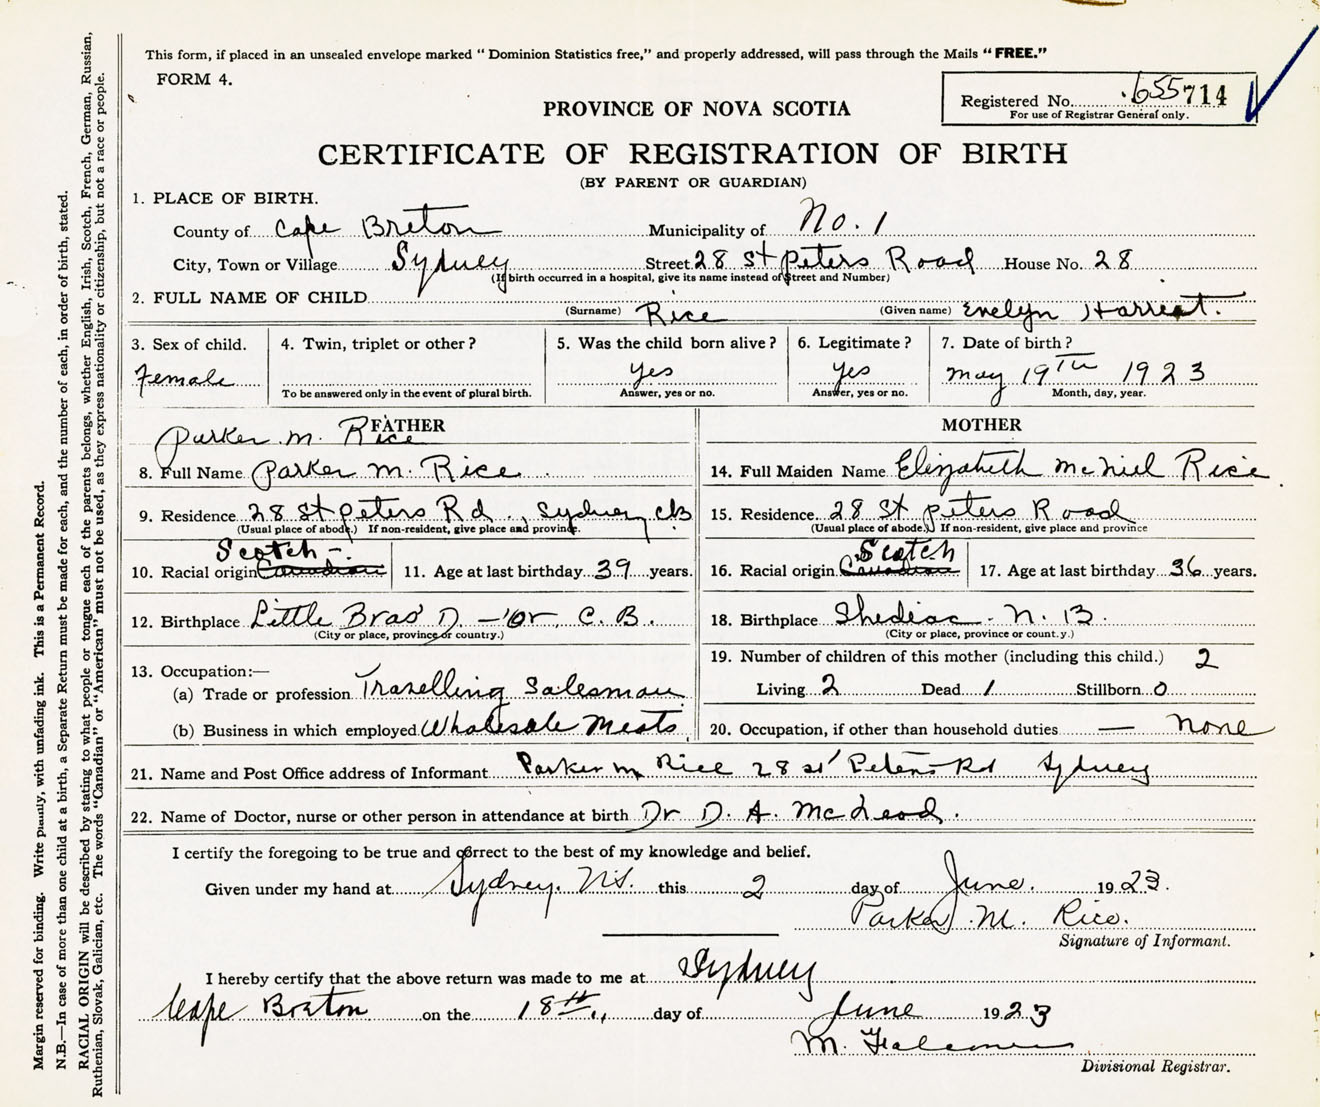 This form, if placed in an unsealed envelope marked “ Dominion Statistics free,” and properly addressed, will pass through the Mails “ FREE.”
FORM 4.
Registered No. 655714
For use of Registrar General only.
PROVINCE OF NOVA SCOTIA
CERTIFICATE OF REGISTRATION OF BIRTH
(BY PARENT OR GUARDIAN)
1. PLACE OF BIRTH.
County of Cape Breton Municipality of No. 1
City, Town or Village Sydney Street 28 St Peters Road House No. 28
(If birth occurred in a hospital, give its name instead of Street and Number)
2. FULL NAME OF CHILD
(Surname) Rice (Given name) Evelyn Harriet.
3. Sex of child. 4. Twin, triplet or other ? 5. Was the child born alive ? 6. Legitimate ? 7. Date of birth ?
Female Yes Yes May 19TH 1923
To be answered only in the event of plural birth. Answer, yes or no. Answer, yes or no. Month, day, year.
FATHER
Parker M. Rice
8. Full Name Parker M. Rice
9. Residence 28 St Peters Rd., Sydney CB
(Usual place of abode.) If non-resident, give place and province.
Scotch -.
10. Racial origin Canadian 11. Age at last birthday 39 years.
12. Birthplace Little Bras D -'Or C. B.
(City or place, province or country.)
13. Occupation:—
(a) Trade or profession Travelling Salesman
(b) Business in which employed Wholesale Meats.
MOTHER
14. Full Maiden Name Elizabeth McNiel Rice
15. Residence 28 St Peters Road
(Usual place of abode.) If non-resident, give place and province
Scotch
16. Racial origin Canadian 17. Age at last birthday 36 years.
18. Birthplace Shediac. N. B.
(City or place, province or count.y.)
19. Number of children of this mother (including this child.) 2
Living 2 Dead 1 Stillborn 0
20. Occupation, if other than household duties — None
21. Name and Post Office address of Informant Parker M Rice 28 St Peters Rd Sydney
22. Name of Doctor, nurse or other person in attendance at birth Dr D. A. McLeod.
I certify the foregoing to be true and correct to the best of my knowledge and belief.
Given under my hand at Sydney. N.S. this 2 day of June. 1923.
Parker M. Rice.
Signature of Informant.
I hereby certify that the above return was made to me at Sydney
Cape Breton on the 18th., day of June 1923
M.
Divisional Registrar.
Margin reserved for binding. Write plainly, with unfading ink. This is a Permanent Record.
N.B.—In case of more than one child at a birth, a Separate Return must be made for each, and the number of each, in order of birth, stated.
RACIAL ORIGIN will be described by stating to what people or tongue each of the parents belongs, whether English, Irish, Scotch, French, German, Russian,
Ruthenian, Slovak, Galician, etc. The words “Canadian” or “American” must not be used, as they express nationality or citizenship, but not a race or people.